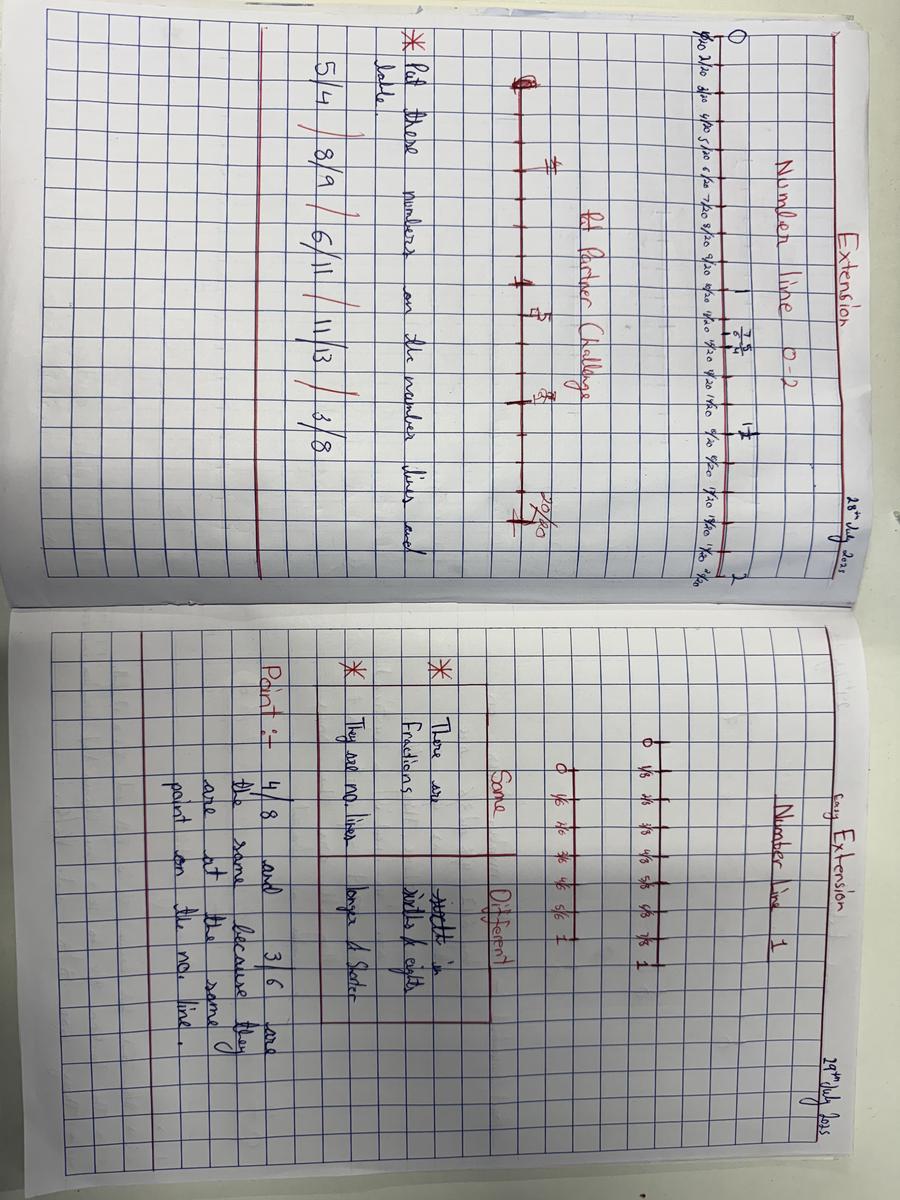 28th July 2025
Extension
Number line 0-2
7/6 5/4 1 1/2
0 1 2
1/20 2/20 3/20 4/20 5/20 6/20 7/20 8/20 9/20 10/20 11/20
Partner Challenge
20/20
* Put these numbers on the number lines and
lable.
5/4 / 8/9 / 6/11 / 11/13 / 3/8
29th July 2025
Easy Extension
Number Line 1
0 1/8 2/8 3/8 4/8 5/8 6/8 7/8 1
0 1/6 2/6 3/6 4/6 5/6 1
Same Different
* There are in
fractions sixths / eights
* They are no. lines longer & Shorter
Point :- 4/8 and 3/6 are
the same because they
are at the same
point on the no. line.